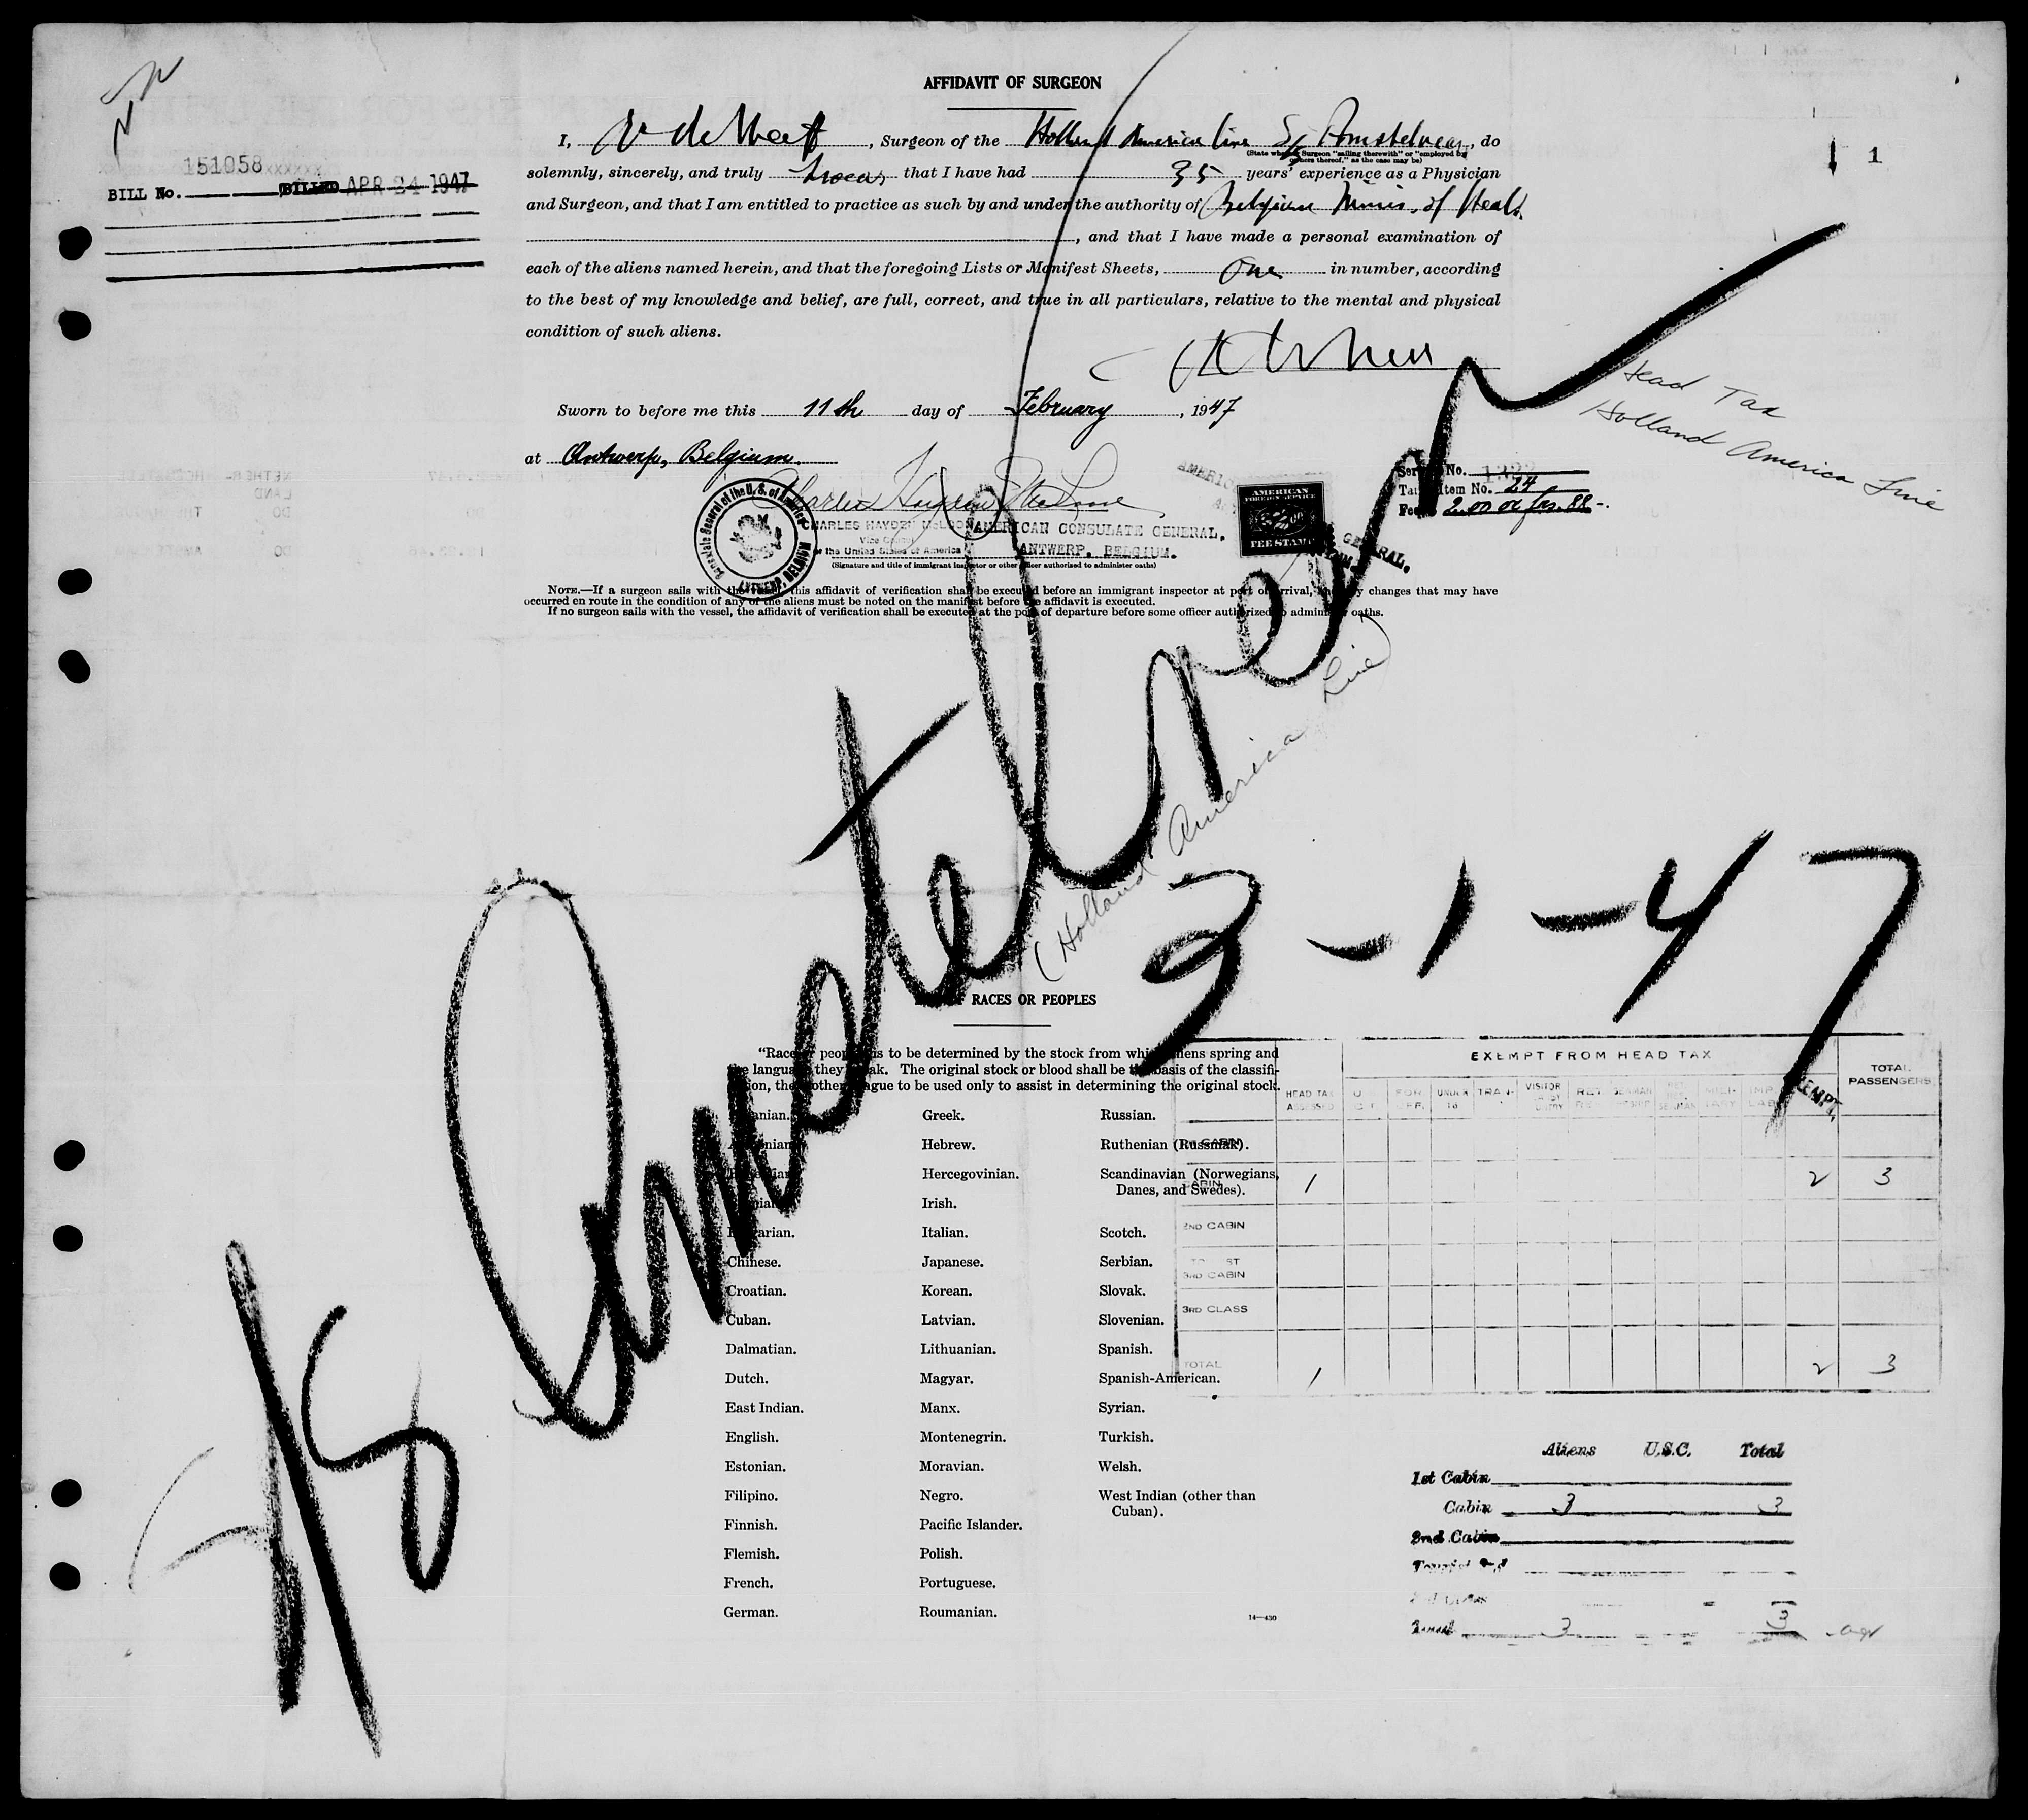 AFFIDAVIT OF SURGEON
I, , Surgeon of the Holland America Line S/S Amstelveen, do
(State whether Surgeon "sailing therewith" or "employed by owners thereof," as the case may be)
solemnly, sincerely, and truly swear that I have had 35 years' experience as a Physician
and Surgeon, and that I am entitled to practice as such by and under the authority of Belgian Minis. of Health
, and that I have made a personal examination of
each of the aliens named herein, and that the foregoing Lists or Manifest Sheets, One in number, according
to the best of my knowledge and belief, are full, correct, and true in all particulars, relative to the mental and physical
condition of such aliens.
Sworn to before me this 11th day of February, 1947
at Antwerp, Belgium.
BILL No. 151058 BILLED APR 24 1947
1
Head Tax
Holland America Line
Service No.
Tariff Item No. 24
Fee
AMERICAN
FOREIGN SERVICE
FEE STAMP
Consulate General of the U. S. of America
ANTWERP, BELGIUM
CHARLES HAYDEN
Vice Consul
of the United States of America
AMERICAN CONSULATE GENERAL,
ANTWERP, BELGIUM.
(Signature and title of immigrant inspector or other officer authorized to administer oaths)
NOTE.—If a surgeon sails with the vessel, this affidavit of verification shall be executed before an immigrant inspector at port of arrival, and any changes that may have
occurred en route in the condition of any of the aliens must be noted on the manifest before the affidavit is executed.
If no surgeon sails with the vessel, the affidavit of verification shall be executed at the port of departure before some officer authorized to administer oaths.
S/S Amstelveen
(Holland America Line)
3-1-47
LIST OF RACES OR PEOPLES
"Race or people" is to be determined by the stock from which aliens spring and
the language they speak. The original stock or blood shall be the basis of the classifi-
cation, the mother tongue to be used only to assist in determining the original stock.
Bulgarian.
Chinese.
Croatian.
Cuban.
Dalmatian.
Dutch.
East Indian.
English.
Estonian.
Filipino.
Finnish.
Flemish.
French.
German.
Greek.
Hebrew.
Hercegovinian.
Irish.
Italian.
Japanese.
Korean.
Latvian.
Lithuanian.
Magyar.
Manx.
Montenegrin.
Moravian.
Negro.
Pacific Islander.
Polish.
Portuguese.
Roumanian.
Russian.
Ruthenian (Russniak).
Scandinavian (Norwegians,
Danes, and Swedes).
Scotch.
Serbian.
Slovak.
Slovenian.
Spanish.
Spanish-American.
Syrian.
Turkish.
Welsh.
West Indian (other than
Cuban).
14—430
EXEMPT FROM HEAD TAX
TOTAL PASSENGERS
HEAD TAX ASSESSED UNDER 16 TRAN- VISITOR
CABIN 1 2 3
2ND CABIN
3RD CABIN
3RD CLASS
TOTAL 1 2 3
Aliens U.S.C. Total
1st Cabin
Cabin 3 3
2nd Cabin
Total 3 3